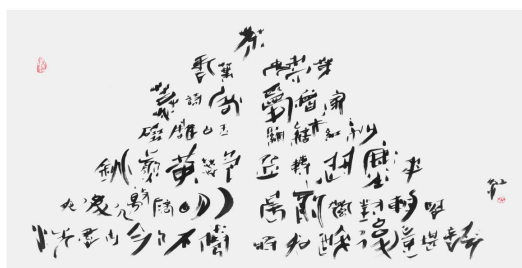 茶
香葉 嫩芽
慕詩客 愛僧家
碾雕白玉 羅織紅紗
銚煎黃蕊色 碗轉麴塵花
夜後邀陪明月 晨前對朝霞
洗盡古今人不倦 將知醉豈堪誇